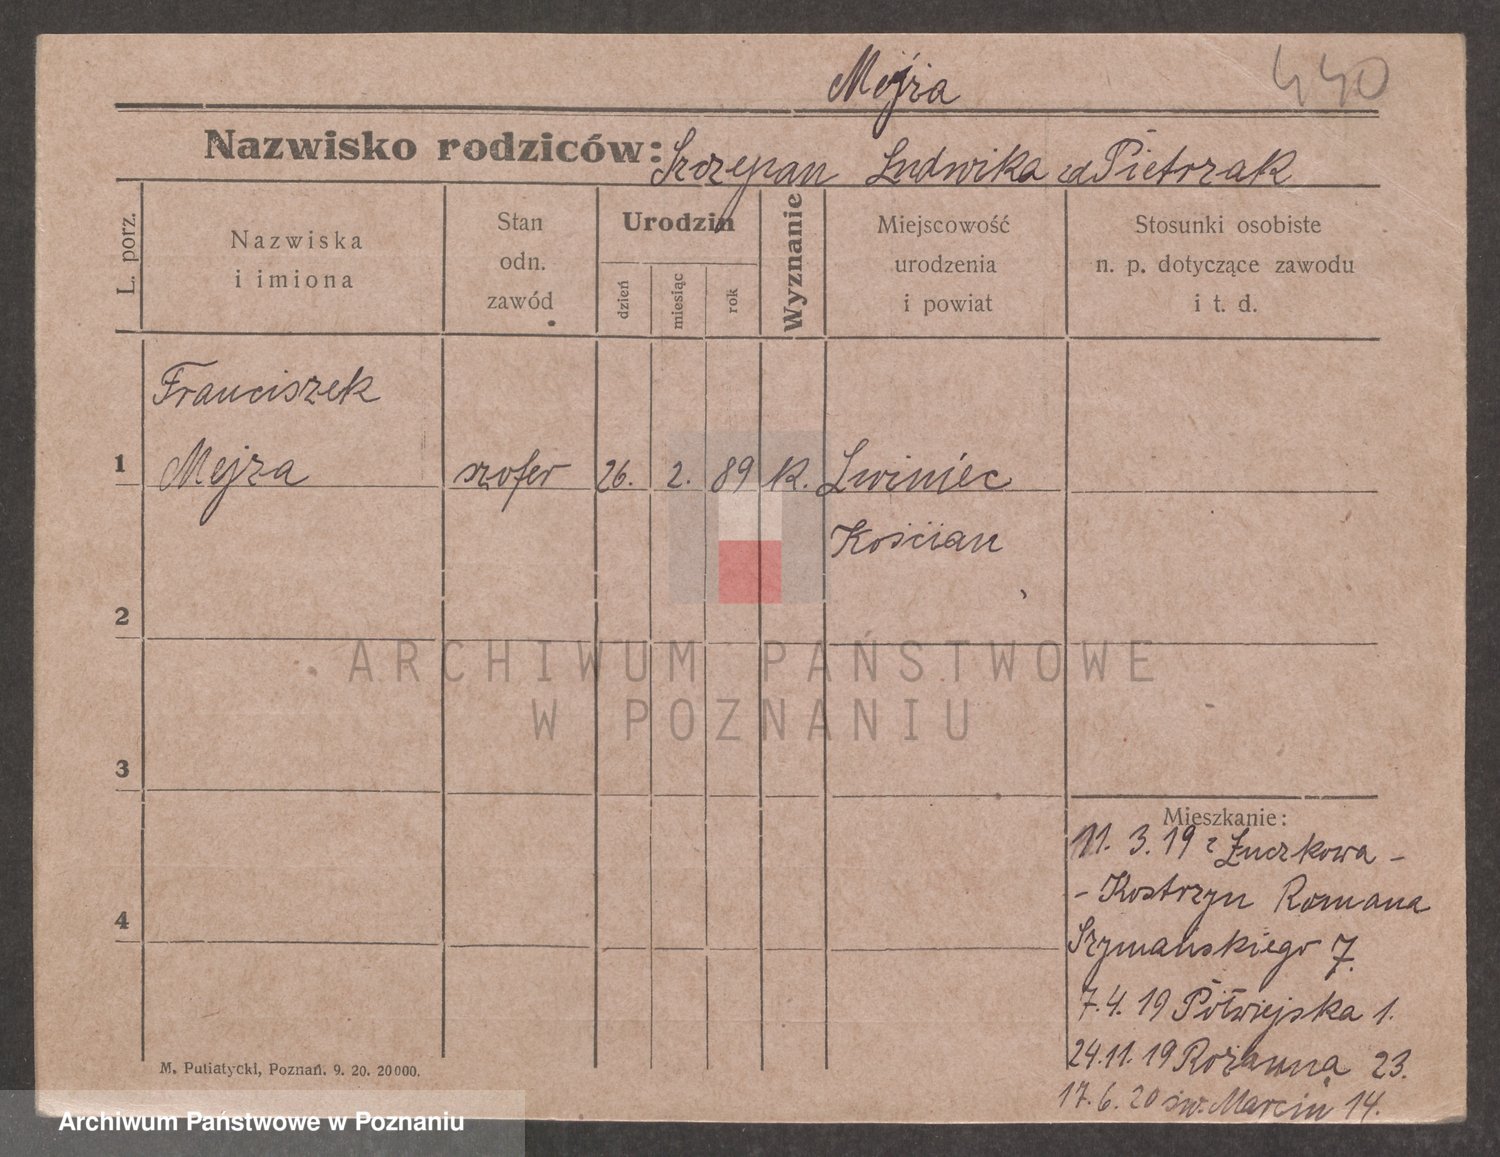 Mejza
440
Nazwisko rodziców: Szczepan Ludwika zd Pietrzak
L. porz.
Nazwiska
i imiona
Stan
odn.
zawód
Urodzin
dzień
miesiąc
rok
Wyznanie
Miejscowość
urodzenia
i powiat
Stosunki osobiste
n. p. dotyczące zawodu
i t. d.
Franciszek
1 Mejza szofer 26. 2. 89 k. Lwiniec
Kościan
2
ARCHIWUM PAŃSTWOWE
W POZNANIU
3
Mieszkanie:
11. 3. 19 z Żuczkowa -
- Kostrzyn Romana
Szymańskiego 7.
4
7.4. 19 Półwiejska 1.
24.11. 19 Rożanna 23.
17.6. 20 św. Marcin 14.
M. Putiatycki, Poznań. 9. 20. 20000.
Archiwum Państwowe w Poznaniu